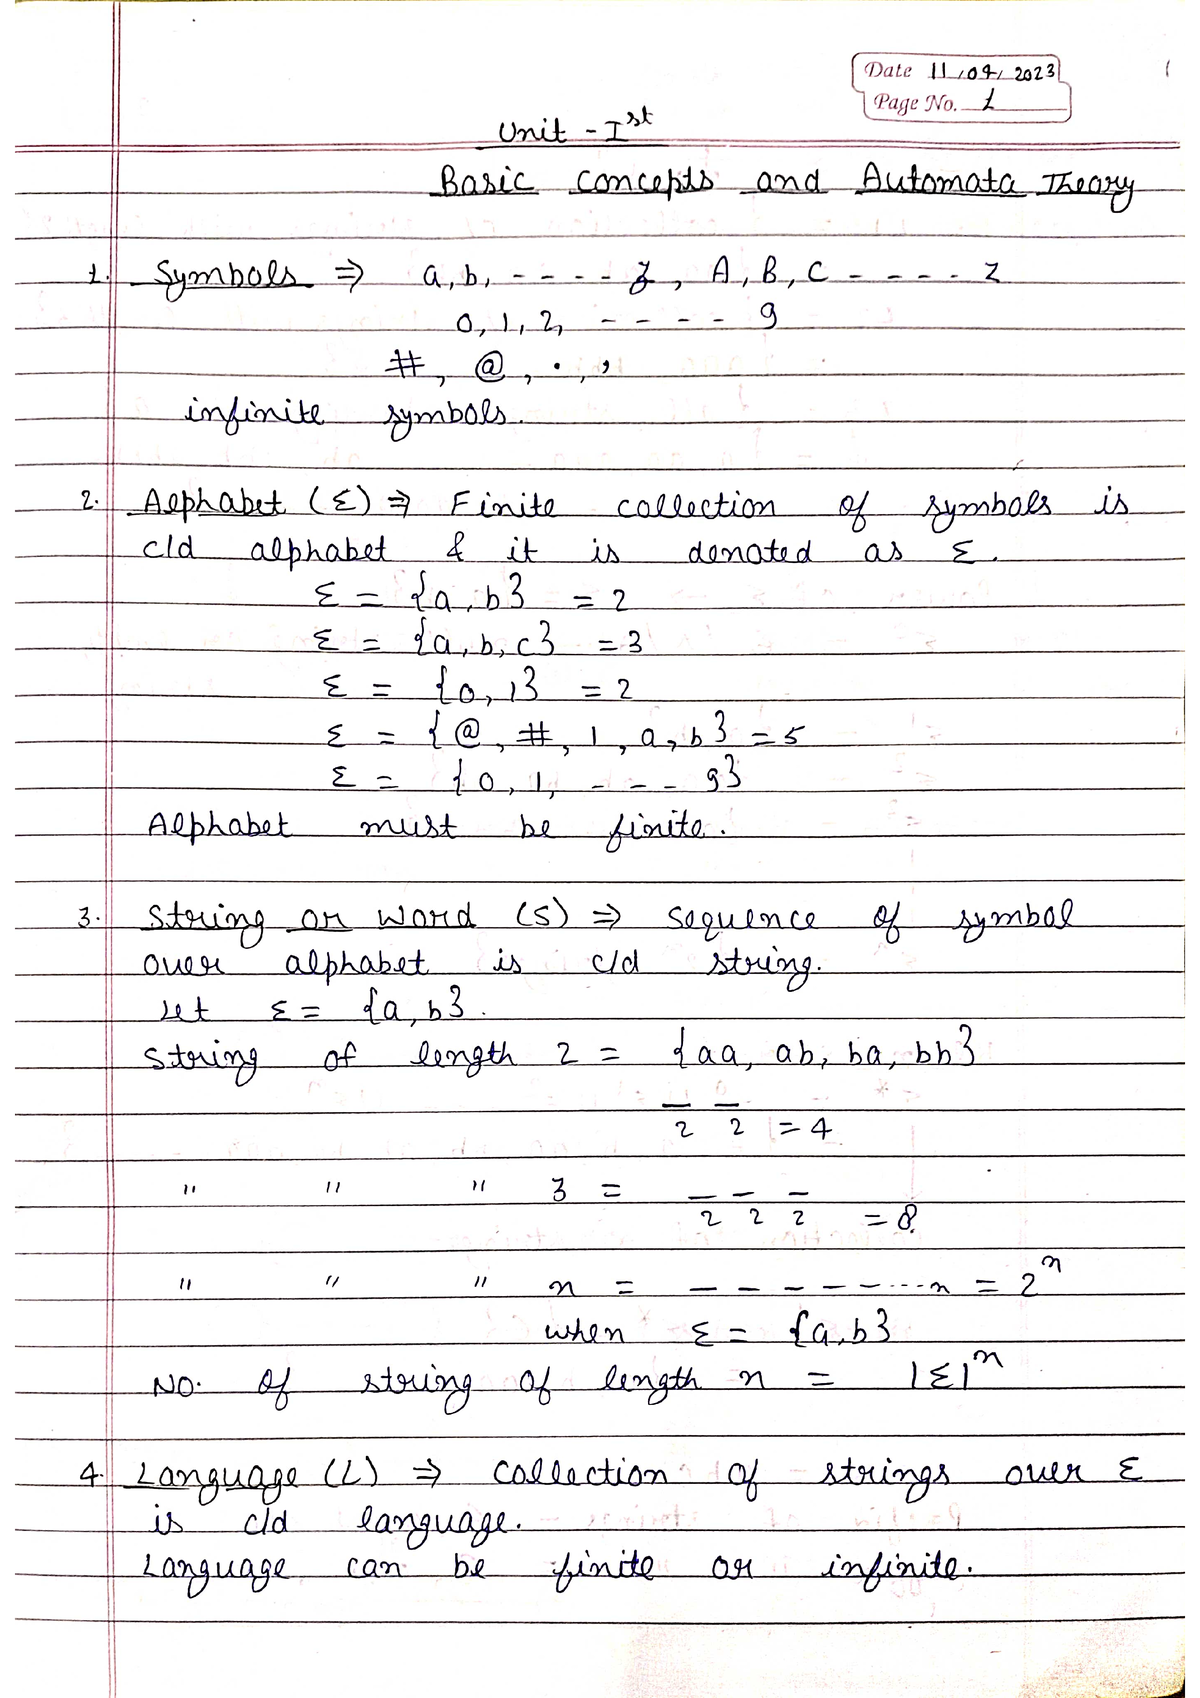 Date 11/04/2023
Page No. 1
Unit - Ist
Basic concepts and Automata Theory
1. Symbols ⇒ a, b, - - - - z, A, B, C - - - - Z
0, 1, 2, - - - - 9
#, @, ., ,
infinite symbols.
2. Alphabet (Σ) ⇒ Finite collection of symbols is
c/d alphabet & it is denoted as Σ.
Σ = {a, b} = 2
Σ = {a, b, c} = 3
Σ = {0, 1} = 2
Σ = {@, #, 1, a, b} = 5
Σ = {0, 1, - - - 9}
Alphabet must be finite.
3. String or Word (S) ⇒ Sequence of symbol
over alphabet is c/d string.
Let Σ = {a, b}.
String of length 2 = {aa, ab, ba, bb}
_ _
2 2 = 4
" " " 3 = _ _ _
2 2 2 = 8
" " " n = _ _ _ _ _ ... n = 2^n
when Σ = {a, b}
No. of string of length n = |Σ|^n
4. Language (L) ⇒ Collection of strings over Σ
is c/d language.
Language can be finite or infinite.